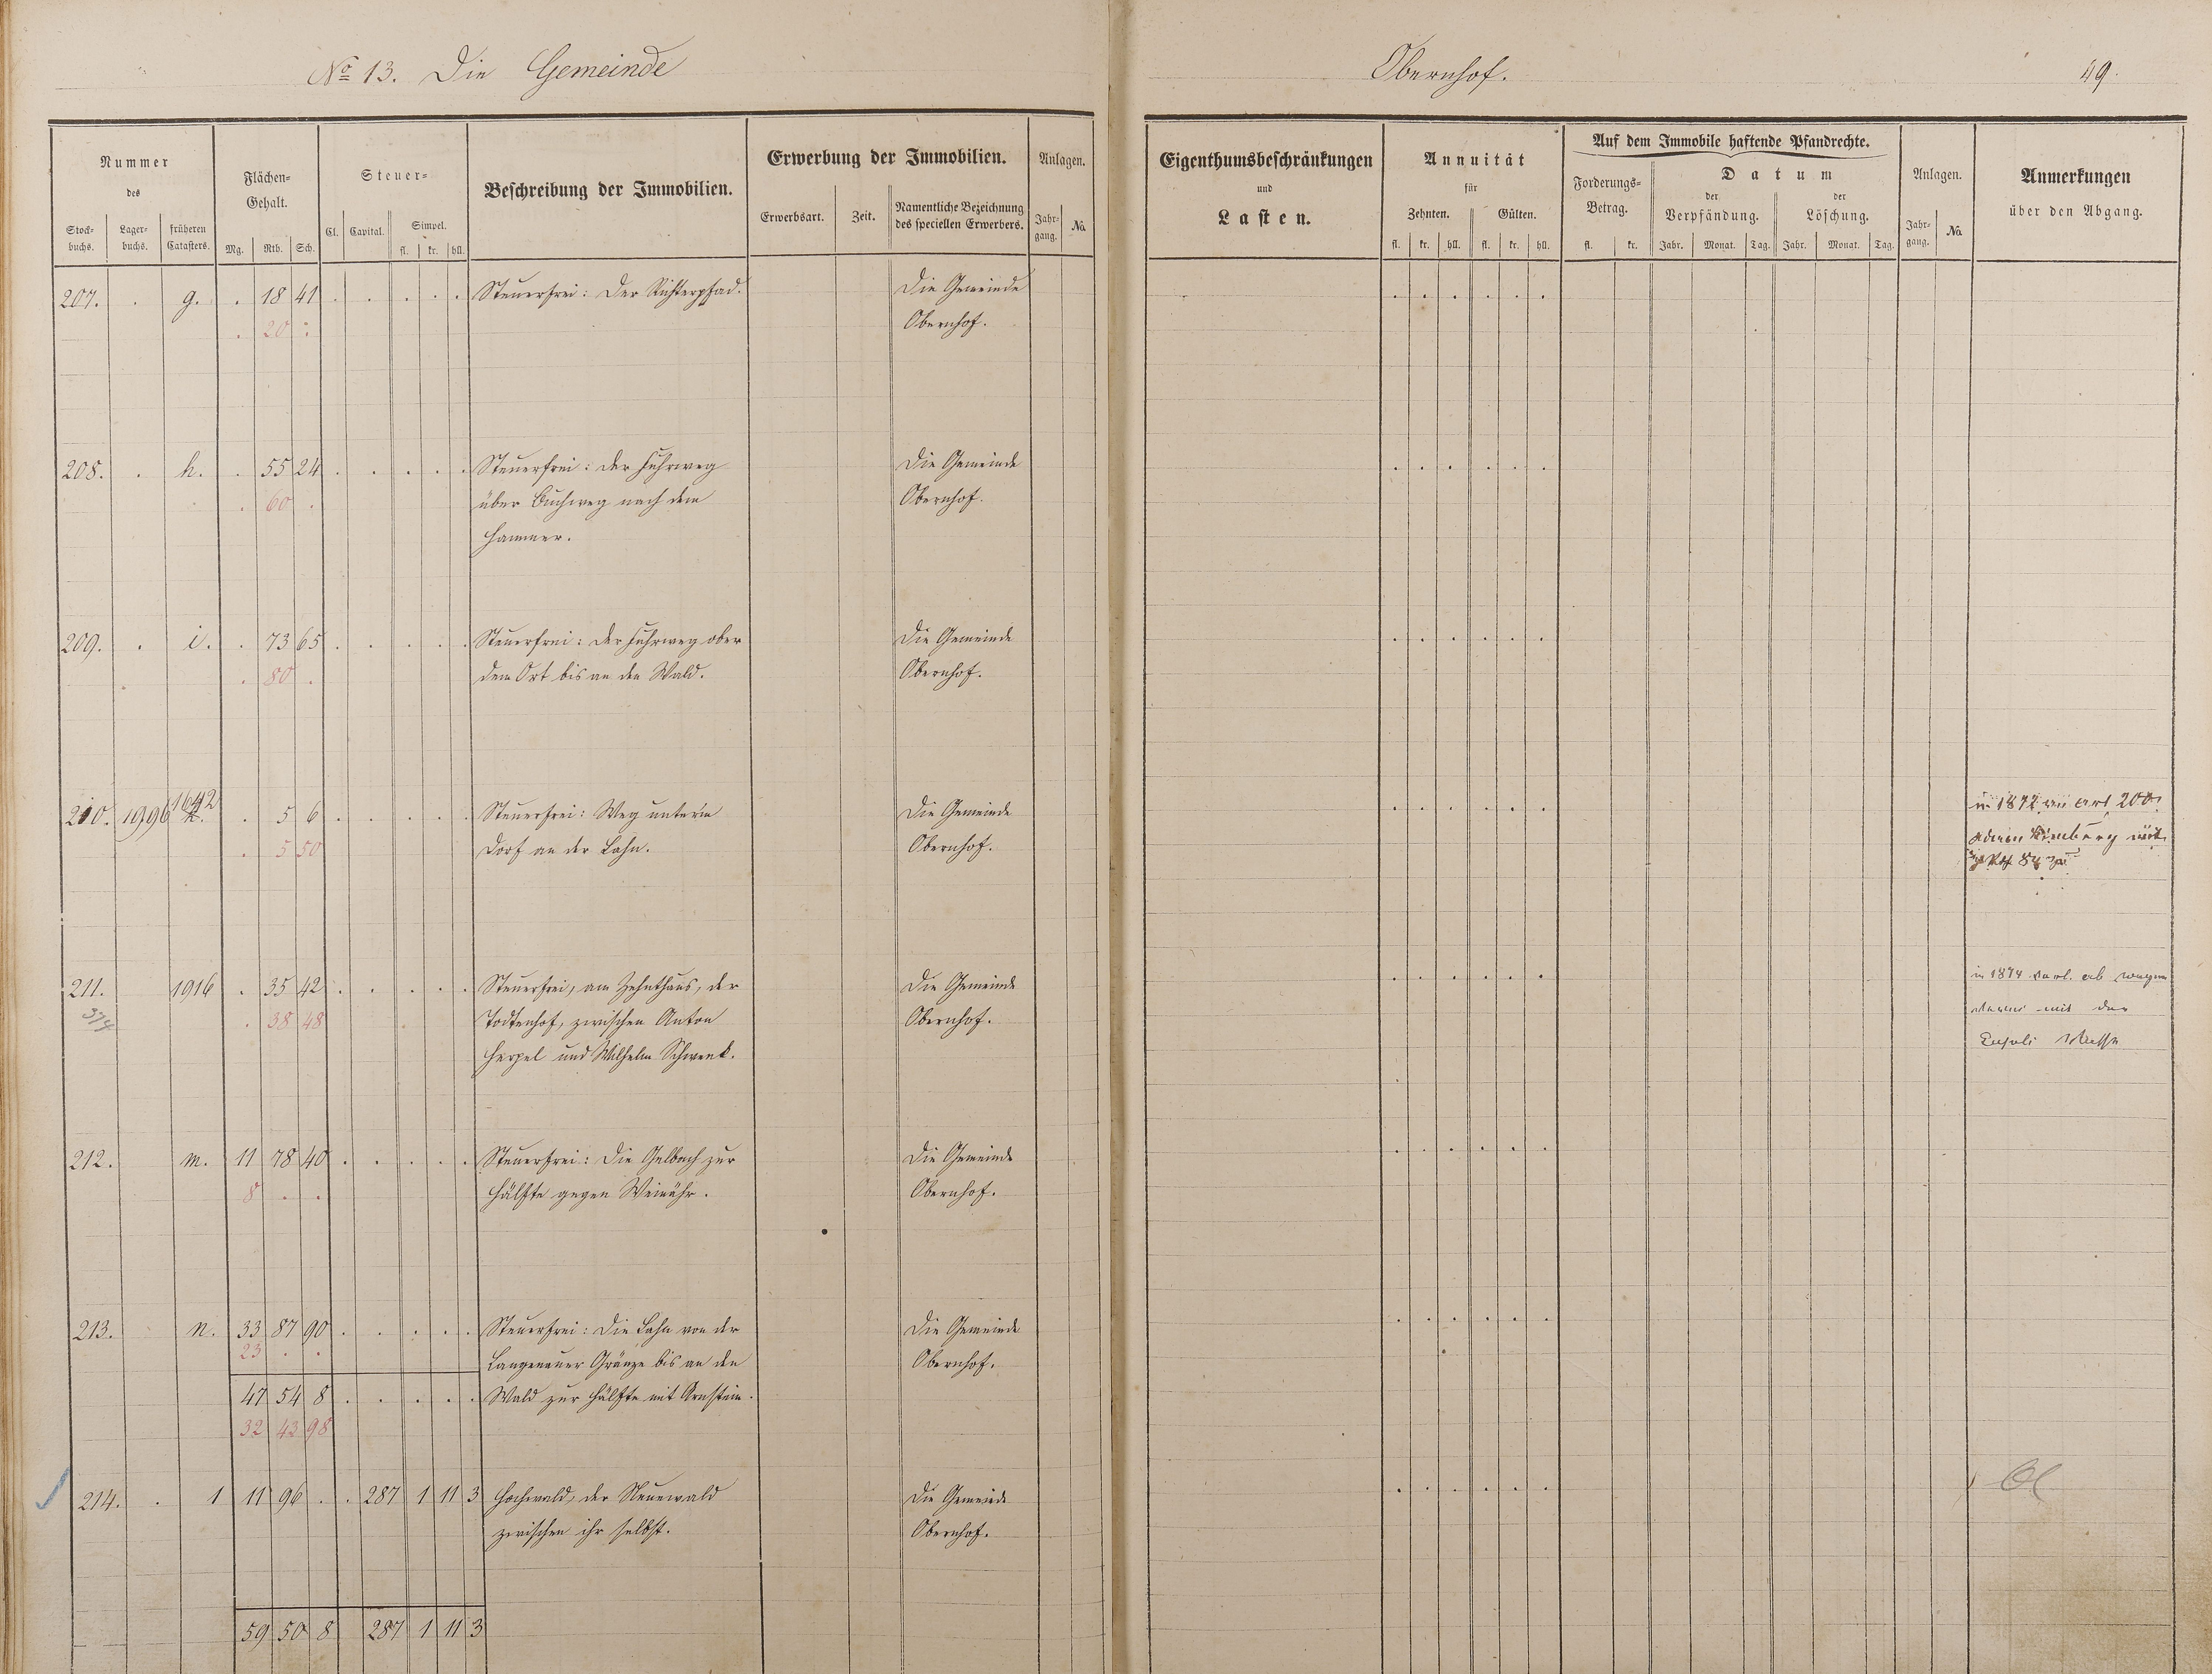 No 13. Die Gemeinde
Obernhof.
49.
Nummer
des
Stock-
buchs.
Lager-
buchs.
früheren
Catasters.
Flächen-
Gehalt.
Mg. Rth. Sch.
Steuer-
Cl. Capital.
Simpel.
fl. kr. hll.
Beschreibung der Immobilien.
Erwerbung der Immobilien.
Erwerbsart. Zeit.
Namentliche Bezeichnung
des speciellen Erwerbers.
Anlagen.
Jahr-
gang.
No.
Eigenthumsbeschränkungen
und
Lasten.
Annuität
für
Zehnten. Gülten.
fl. kr. hll. fl. kr. hll.
Auf dem Immobile haftende Pfandrechte.
Forderungs-
Betrag.
fl. kr.
Datum
der
Verpfändung.
der
Löschung.
Jahr. Monat. Tag. Jahr. Monat. Tag.
Anlagen.
Jahr-
gang.
No.
Anmerkungen
über den Abgang.
207. g. 18 41 Steuerfrei: Der Richterpfad. Die Gemeinde
20 Obernhof.
208. h. 55 24 Steuerfrei: der Fuhrweg Die Gemeinde
60 über Buchweg nach dem Obernhof.
Hammer.
209. i. 73 65 Steuerfrei: der Fuhrweg ober Die Gemeinde
80 dem Ort bis an den Wald. Obernhof.
210. 1996 1642 k. 5 6 Steuerfrei: Weg unterm Die Gemeinde in 1872 art 200
5 50 Dorf an der Lahn. Obernhof.
84
211. 1916 35 42 Steuerfrei, am Zehnthaus, der Die Gemeinde in 1874 ab wegen
374 38 48 Todtenhof, zwischen Anton Obernhof. mit der
Herpel und Wilhelm Schwenk. Masse
212. m. 11 78 40 Steuerfrei: Die Gelbach zur Die Gemeinde
8 Hälfte gegen Weinähr. Obernhof.
213. n. 33 87 90 Steuerfrei: Die Lahn von der Die Gemeinde
23 Langenauer Gränze bis an den Obernhof.
47 54 8 Wald zur Hälfte mit Arnstein.
32 43 98
214. 1 11 96 287 1 11 3 Hochwald, der Neuewald Die Gemeinde
zwischen ihr selbst. Obernhof.
59 50 8 287 1 11 3